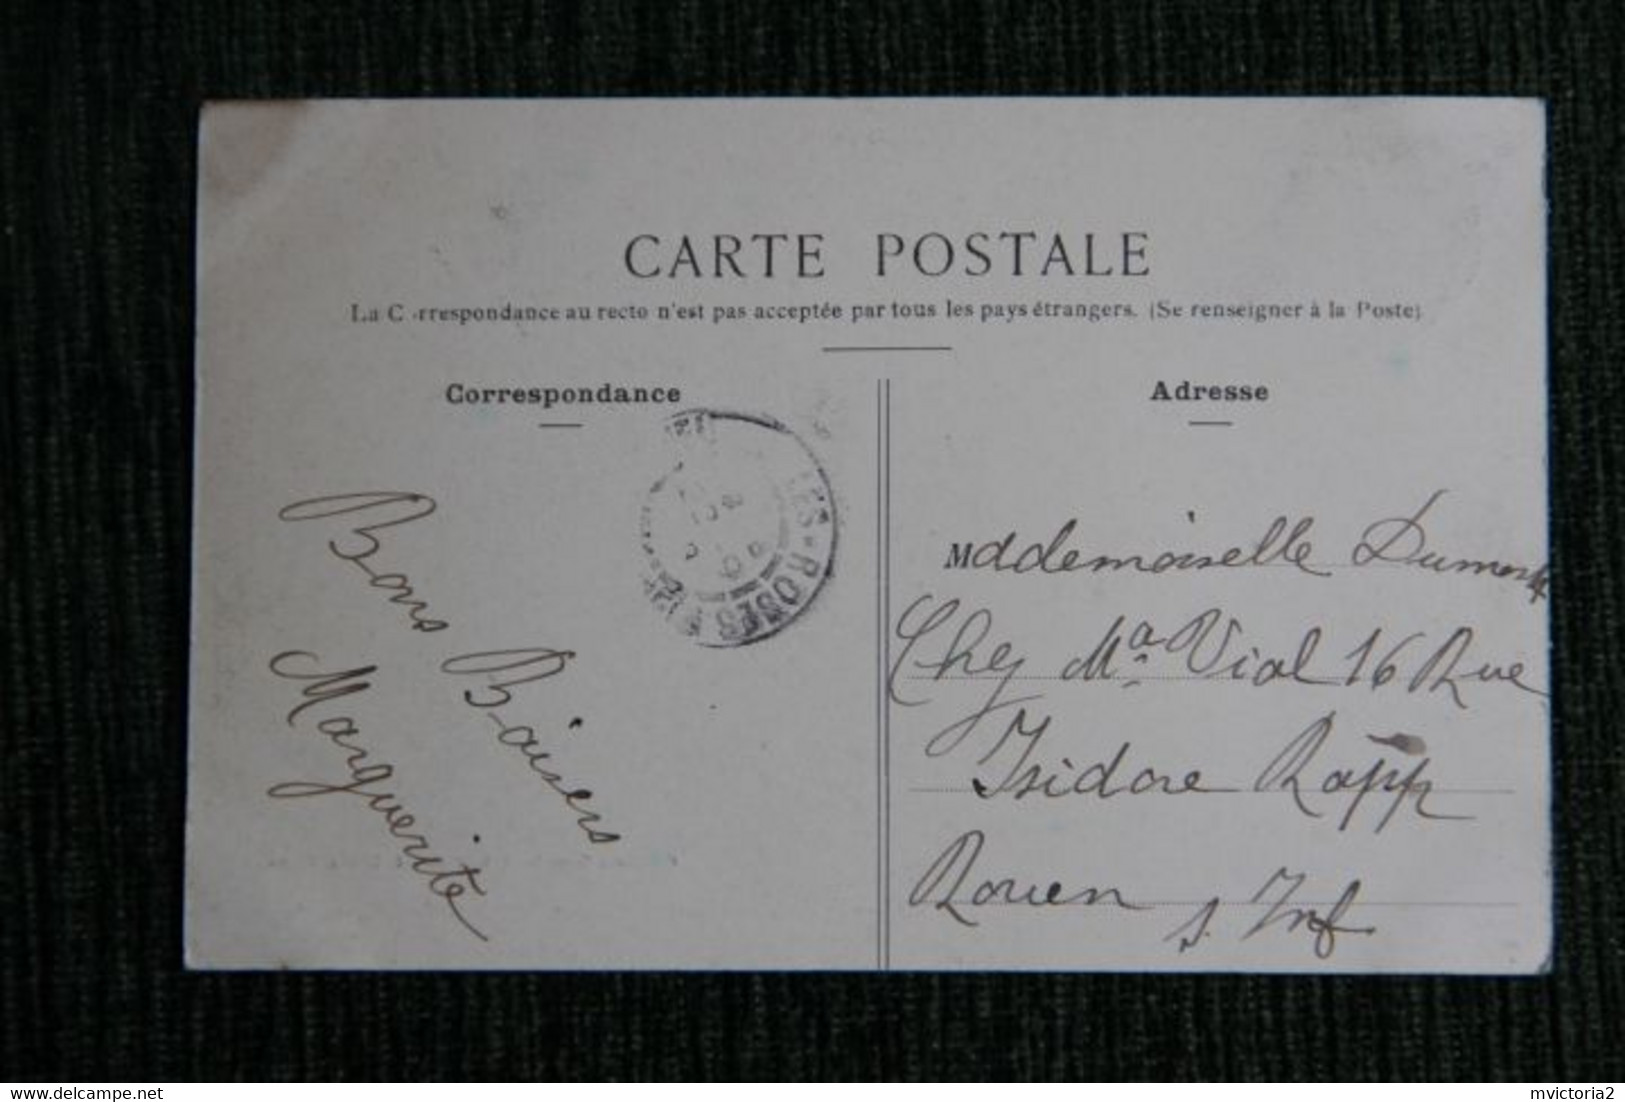 CARTE POSTALE
La C rrespondance au recto n'est pas acceptée par tous les pays étrangers. (Se renseigner à la Poste)
Correspondance
Adresse
Bons Baisers
Marguerite
Mademoiselle
Chez Ma Vial 16 Rue
Isidore Rapp
Rouen
S. Inf
ROSES
http://www.delcampe.net
mvictoria2